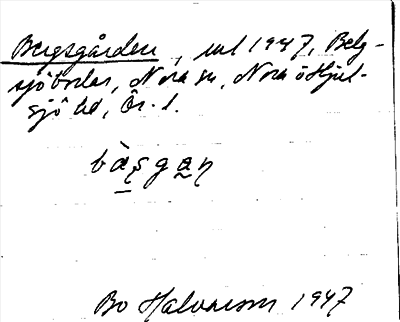 Bergsgården, ul 1947, Belg-
sjöbodar, Nora sn, Nora o Hjul-
sjö bd, Ör. l.
bàs̱gan
Bo Halvarson 1947